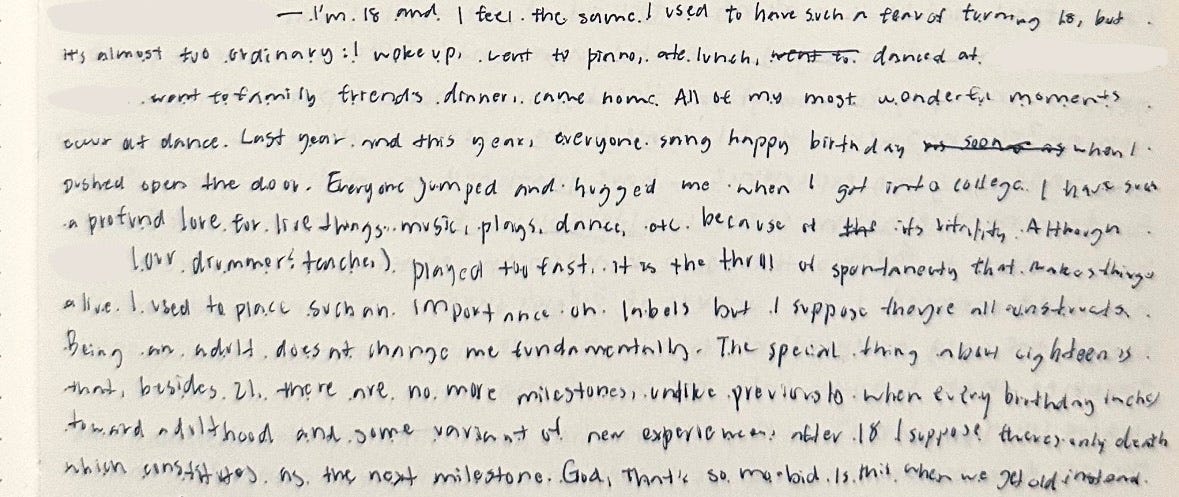 — I'm 18 and I feel the same. I used to have such a fear of turning 18, but
it's almost too ordinary: I woke up, went to piano, ate lunch, went to danced at
went to family friends dinner, came home. All of my most wonderful moments
occur at dance. Last year and this year, everyone sang happy birthday as soon as when I
pushed open the door. Everyone jumped and hugged me when I got into college. I have such
a profund love for live things: music, plays, dance, etc. because of the its vitality. Although
(our drummer/teacher) played too fast, it is the thrill of spontaneity that makes things
alive. I used to place such an importance on labels but I suppose theyre all constructs.
Being an adult doesnt change me fundamentally. The special thing about eighteen is
that, besides 21, there are no more milestones, unlike previously when every birthday inches
toward adulthood and some variant of new experience. after 18 I suppose theres only death
which constitutes as the next milestone. God, that's so morbid. Is this when we get old instead.